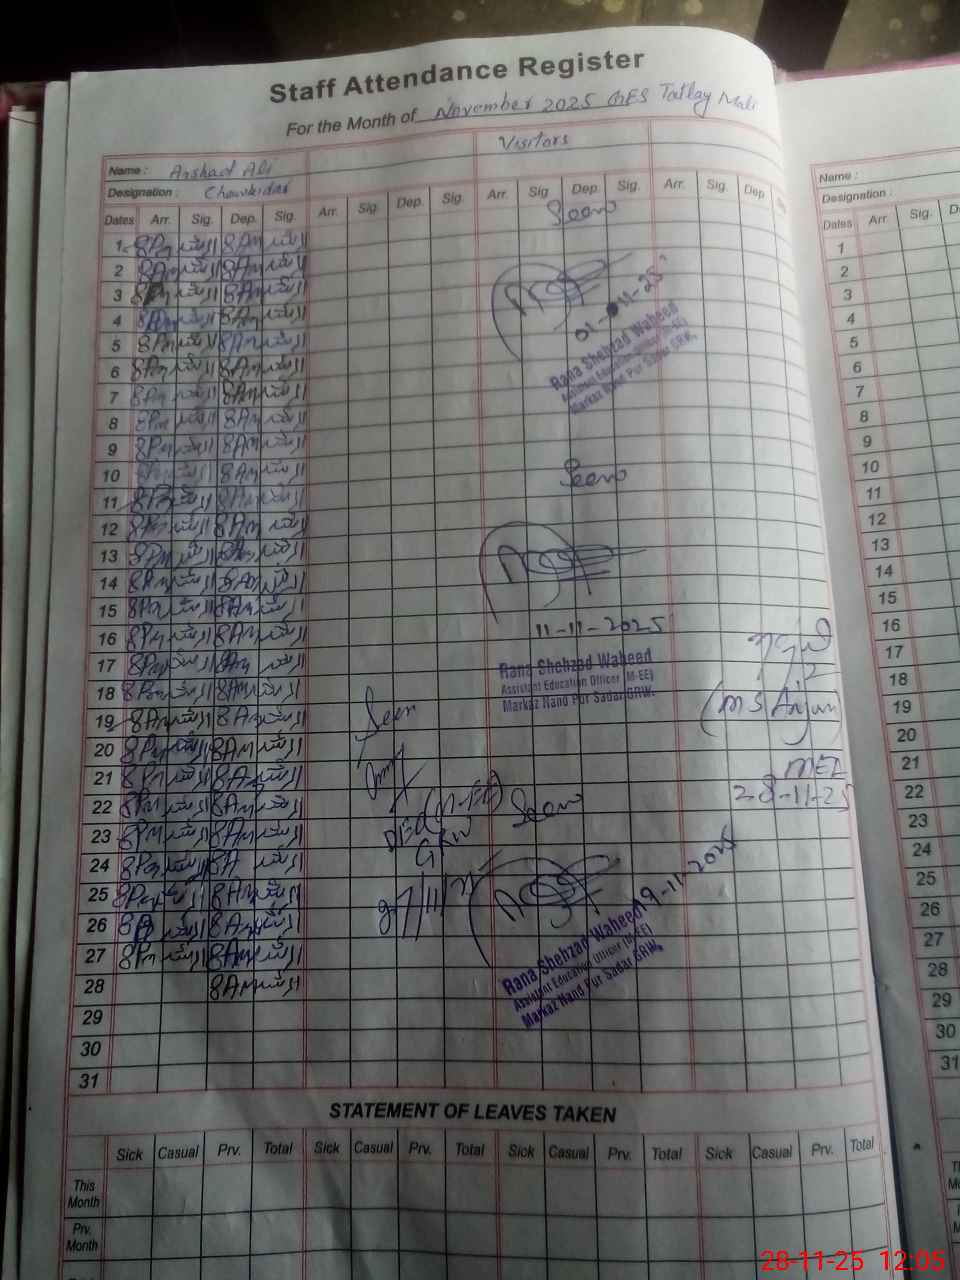 Staff Attendance Register
For the Month of November 2025 GES Tatlay Mali
Visitors
Name : Arshad Ali
Designation : Chowkidar
Dates Arr. Sig. Dep. Sig. Arr. Sig. Dep. Sig. Arr. Sig. Dep. Sig. Arr. Sig. Dep.
Seen
1 8Pm ارشد 8Am ارشد
2 8Pm ارشد 8Am ارشد
3 8Pm ارشد 8Am ارشد
4 8Pm ارشد 8Am ارشد
5 8Pm ارشد 8Am ارشد
6 8Pm ارشد 8Am ارشد
7 8Pm ارشد 8Am ارشد
8 8Pm ارشد 8Am ارشد
9 8Pm ارشد 8Am ارشد
10 8Pm ارشد 8Am ارشد
11 8Pm ارشد 8Am ارشد
12 8Pm ارشد 8Am ارشد
13 8Pm ارشد 8Am ارشد
14 8Pm ارشد 8Am ارشد
15 8Pm ارشد 8Am ارشد
16 8Pm ارشد 8Am ارشد
17 8Pm ارشد 8Am ارشد
18 8Pm ارشد 8Am ارشد
19 8Pm ارشد 8Am ارشد
20 8Pm ارشد 8Am ارشد
21 8Pm ارشد 8Am ارشد
22 8Pm ارشد 8Am ارشد
23 8Pm ارشد 8Am ارشد
24 8Pm ارشد 8A ارشد
25 8Pm ارشد 8Am ارشد
26 8P ارشد 8Am ارشد
27 8Pm ارشد 8Am ارشد
28 8Am ارشد
29
30
31
01-11-25
Rana Shehzad Waheed
Assistant Education Officer (M-EE)
Markaz Nand Pur Sadar GRW.
Seen
11-11-2025
Rana Shehzad Waheed
Assistant Education Officer (M-EE)
Markaz Nand Pur Sadar GRW.
Seen
(M-EE)
GRW
Seen
19-11-2025
Rana Shehzad Waheed
Assistant Education Officer (M-EE)
Markaz Nand Pur Sadar GRW.
(M S Anjum)
28-11-25
STATEMENT OF LEAVES TAKEN
Sick Casual Prv. Total Sick Casual Prv. Total Sick Casual Prv. Total Sick Casual Prv. Total
This Month
Prv. Month
Name :
Designation :
Dates Arr. Sig.
1
2
3
4
5
6
7
8
9
10
11
12
13
14
15
16
17
18
19
20
21
22
23
24
25
26
27
28
29
30
31
28-11-25 12:05